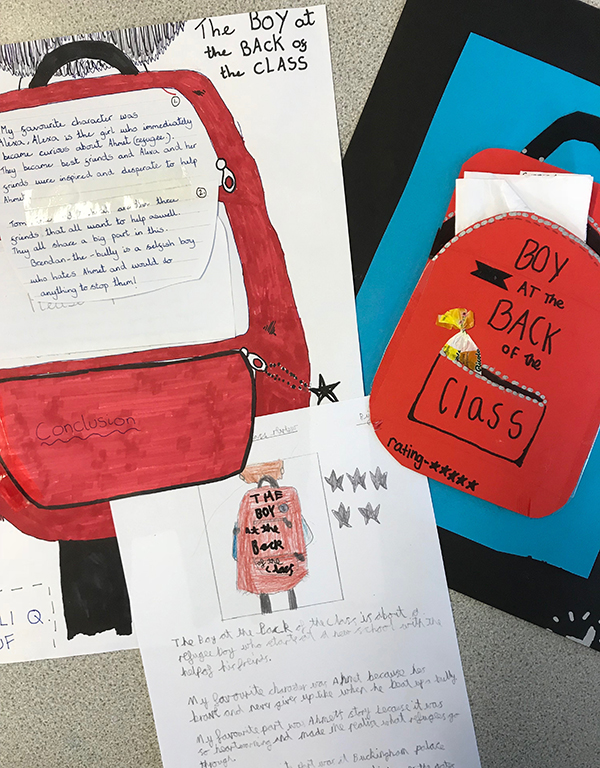 The BOY at
the BACK of
the CLASS
1
My favourite character was
Alexa. Alexa is the girl who immediately
became curious about Ahmet (refugee).
They became best friends and Alexa and her
friends were inspired and desperate to help
Ahmet
2
Tom three
friends that all want to help aswell.
They all share a big part in this.
Brendan-the-bully is a selfish boy
who hates Ahmet and would do
anything to stop them!
Conclusion
LI Q.
UF
BOY
AT the
BACK
OF the
Class
rating-★★★★★
THE
BOY
at the
Back
of the
class
The Boy at the Back of the class is about a
refugee boy who started a new school with the
help of his friends.
My favourite character was Ahmet because he's
brave and never gives up like when he beat up a bully
My favourite part was Ahmets story because it was
so heartwarming and made me realise what refugees go
through.
that was at Buckingham palace